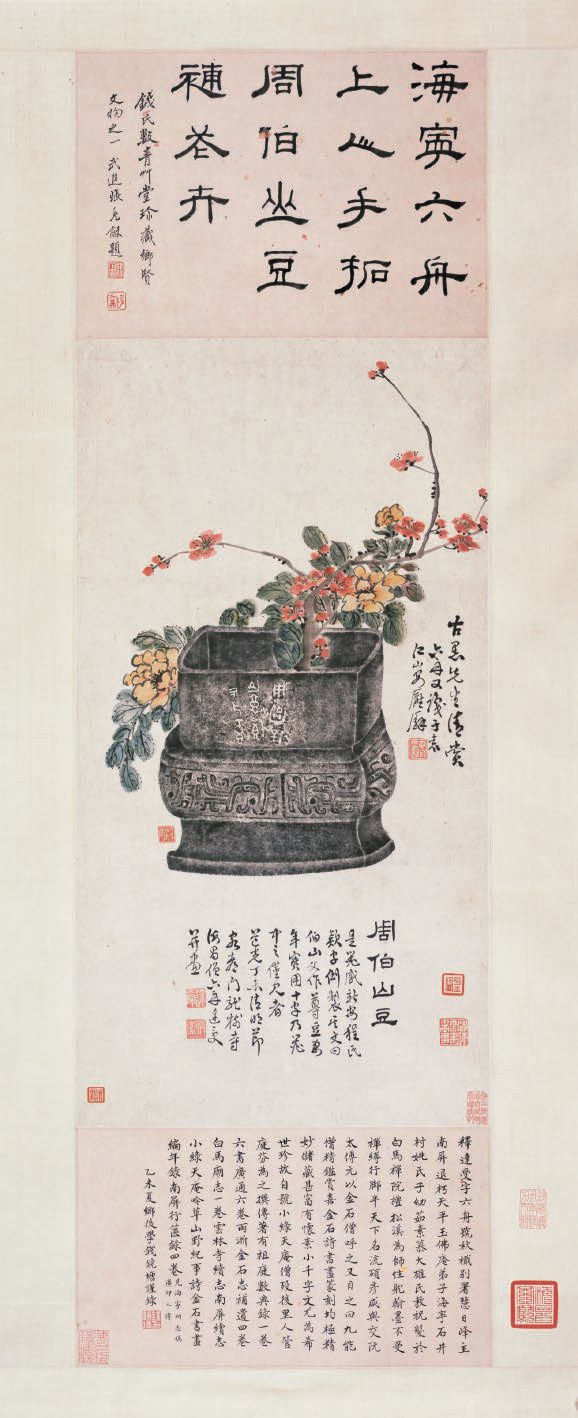 海寧六舟
上人手拓
周伯山豆
補花卉
錢氏數青草堂珍藏鄉賢
文物之一 武進張克龢題
古愚先生清賞
六舟又識于袁
仁山安廬
周伯山豆
是器藏新安程氏
款字倒製其文曰
伯山父作尊豆萬
年寶用十字乃器
中之僅見者
道光丁未清明節
客蘇門
海昌僧六舟達受
并畫
釋達受字六舟號秋檝別署慧日峰主
南屏退朽天平玉佛庵弟子海寧石井
村姚氏子幼茹素慕大雄氏教祝髮於
白馬禪院禮松溪為師性躭翰墨不受
禪縛行腳半天下名流碩彥咸與交阮
太傅元以金石僧呼之又目之曰九能
僧精鑑賞嘉金石詩書畫篆刻均極精
妙儲藏甚富有懷素小千字文尤為希
世珍故自號小綠天庵僧歿後里人管
庭芬為之撰傳著有祖庭數典錄一卷
六書廣通六卷兩浙金石志補遺四卷
白馬廟志一卷雲林寺續志南屏續志
小綠天庵吟草山野紀事詩金石書畫
編年錄南屏行篋錄四卷
乙未夏鄉後學錢鏡塘謹錄